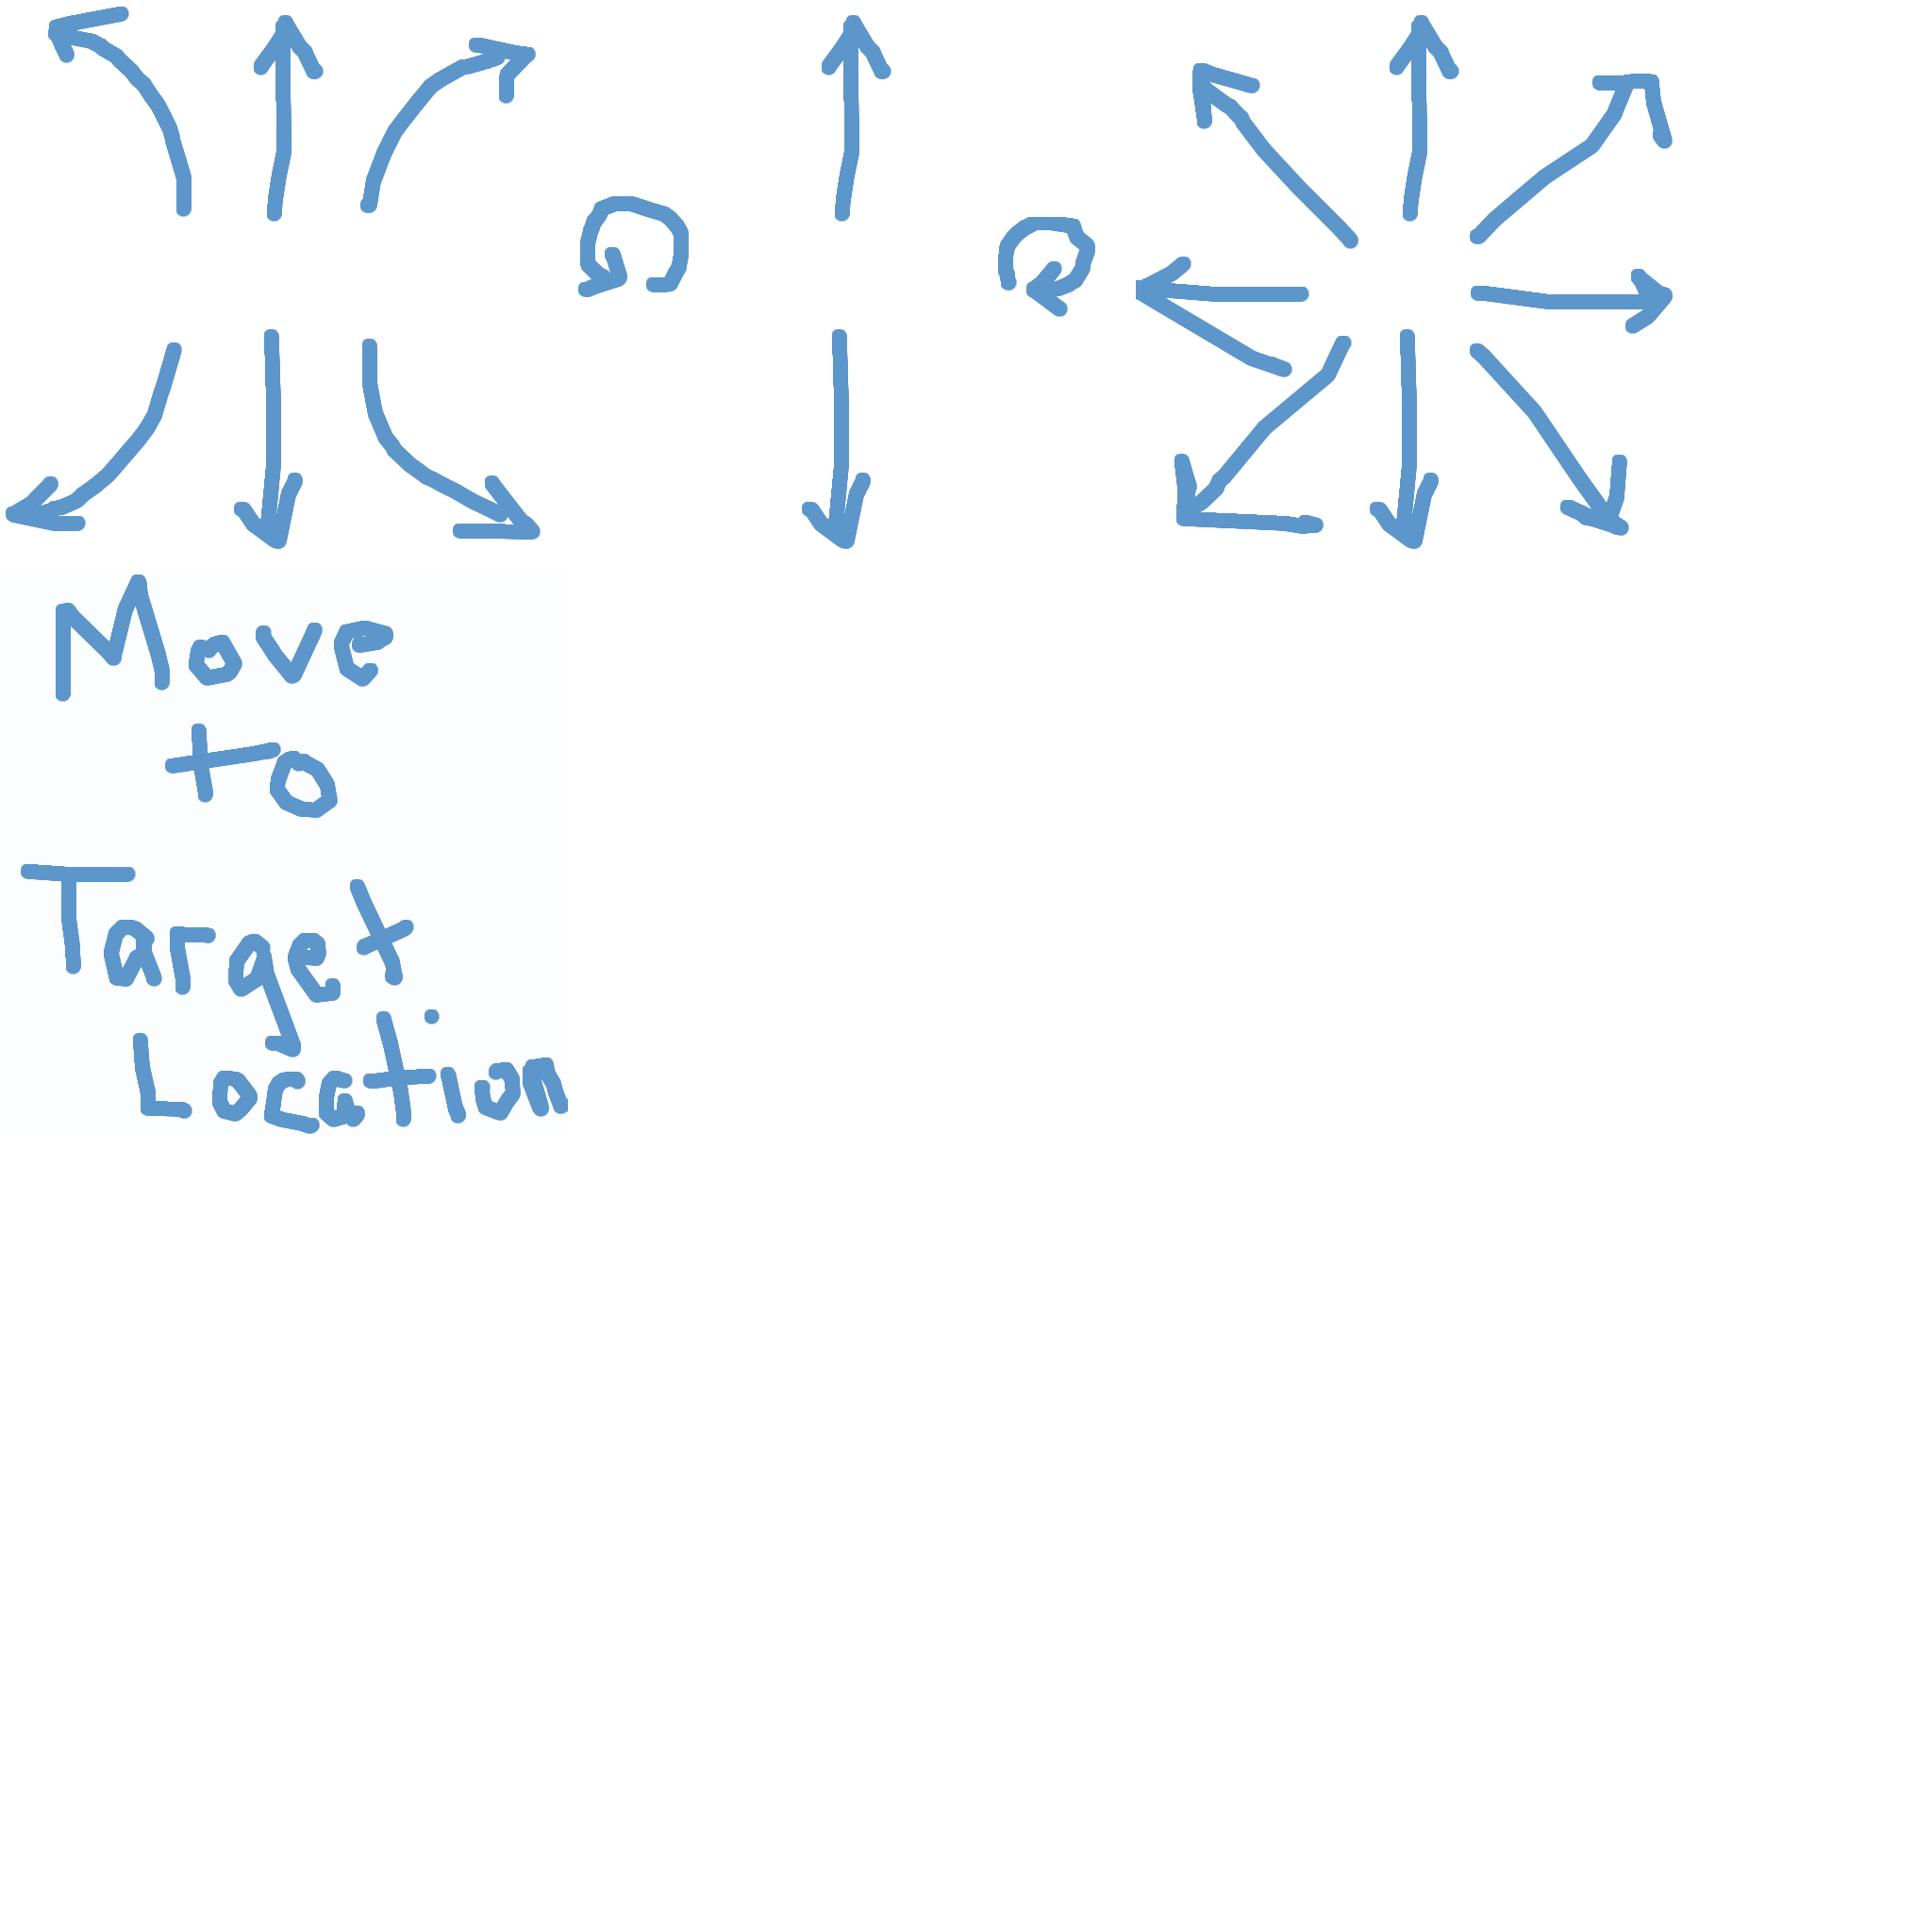 Move
to
Target
Location